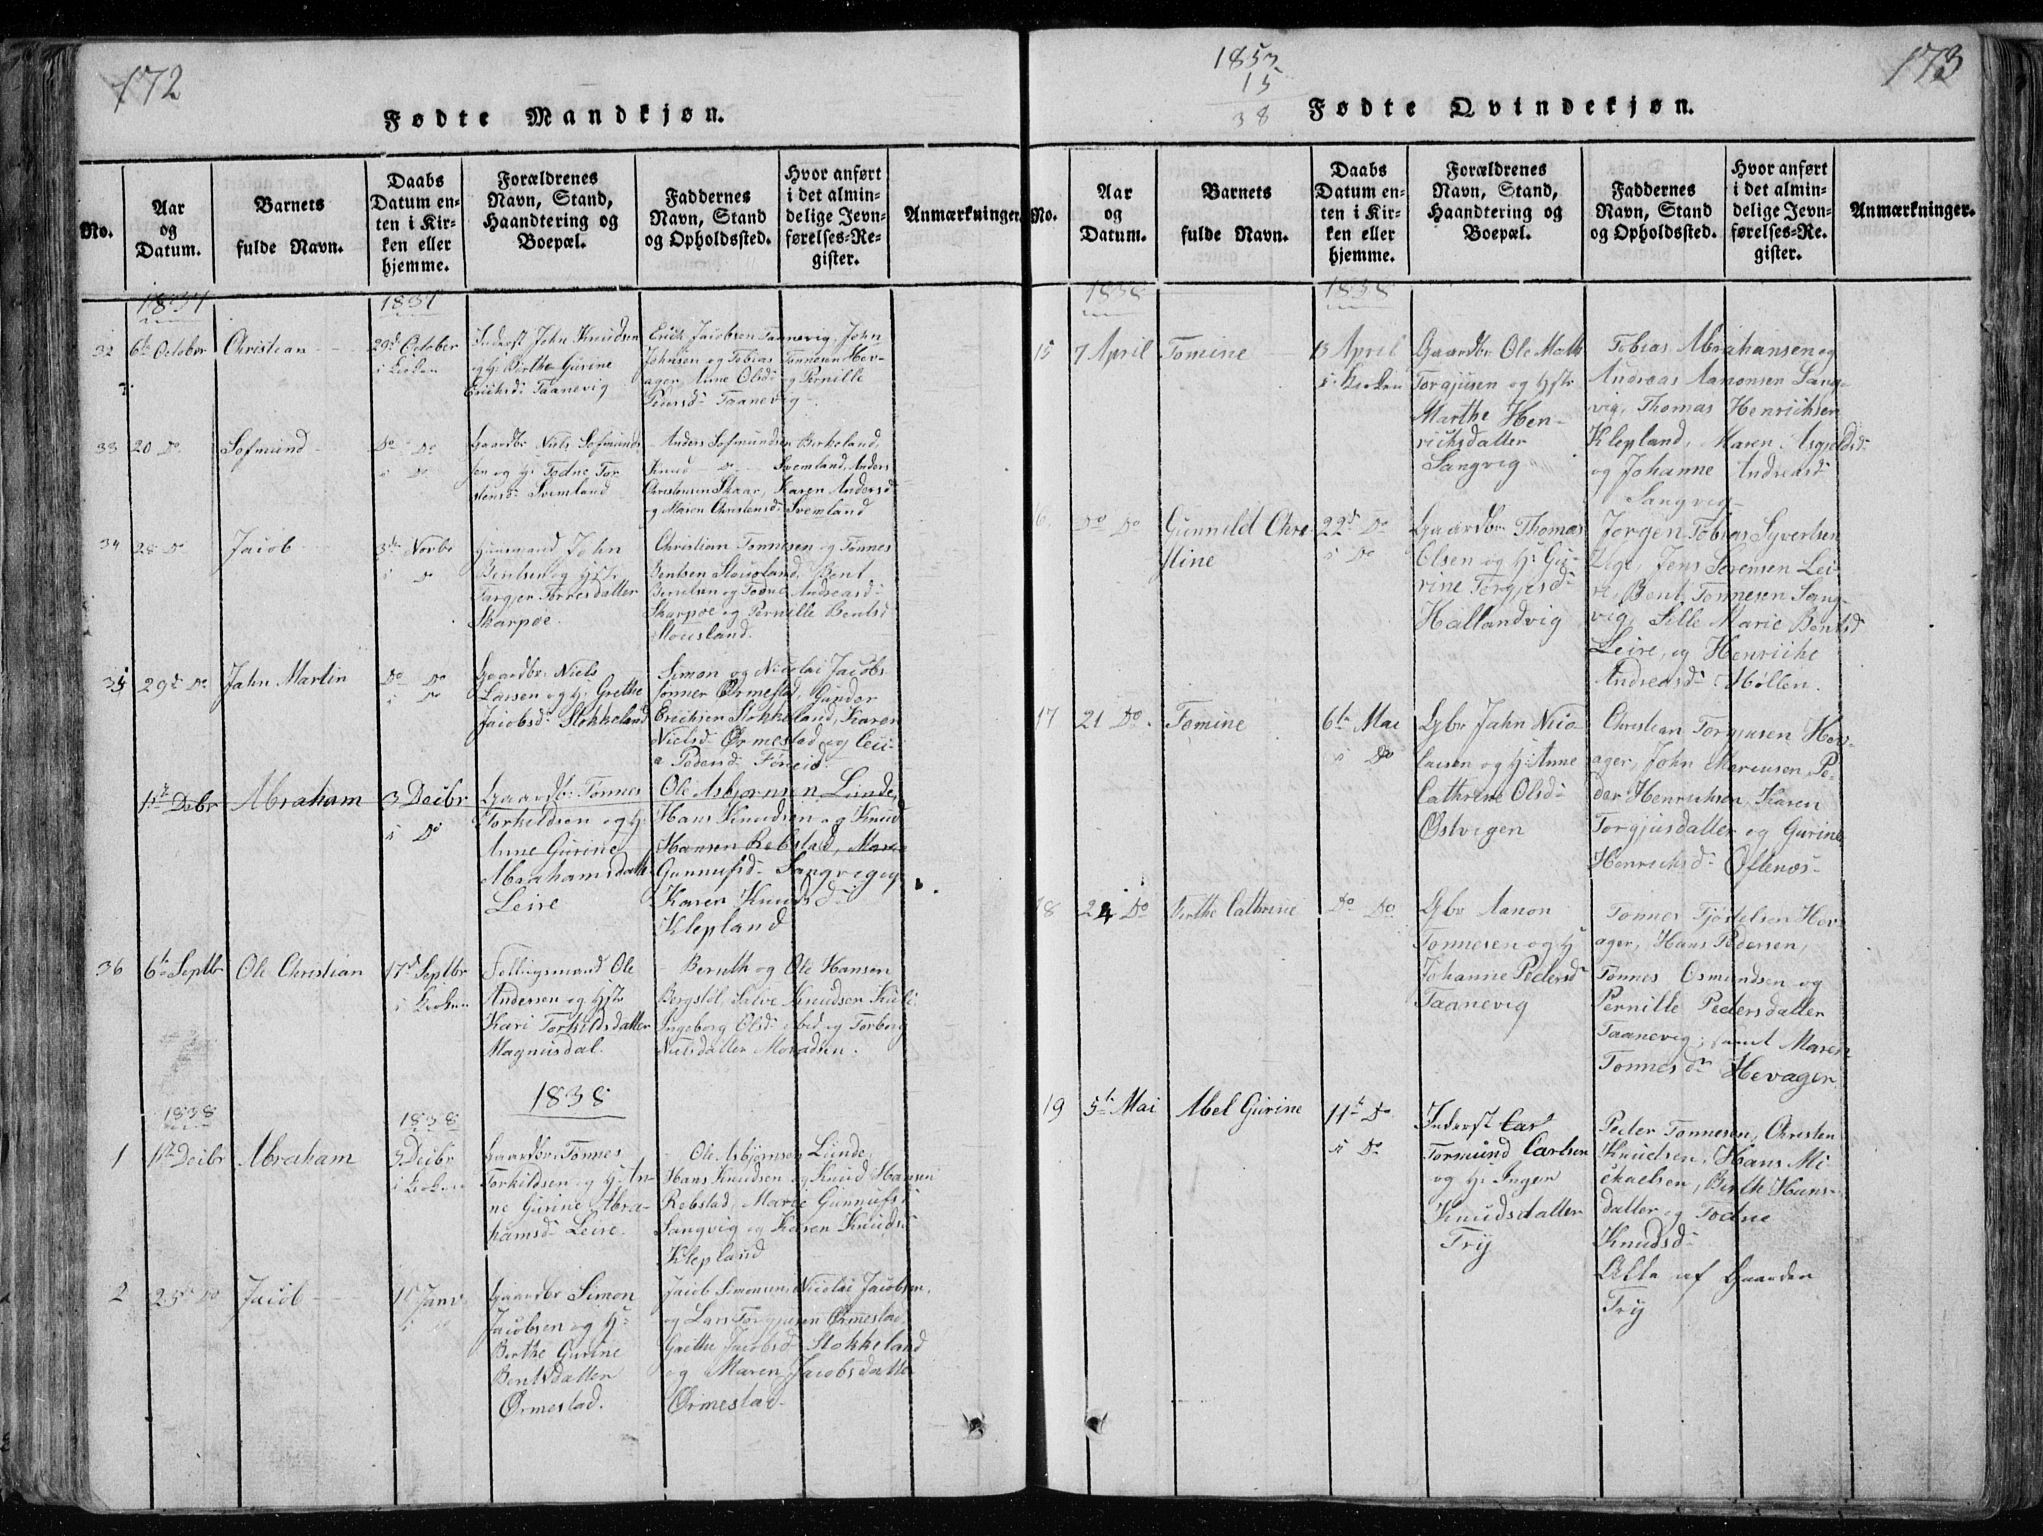 172
Fødte Mandkjøn.
No.
Aar
og
Datum.
Barnets
fulde Navn.
Daabs
Datum en-
ten i Kir-
ken eller
hjemme.
Forældrenes
Navn, Stand,
Haandtering og
Boepæl.
Faddernes
Navn, Stand
og Opholdssted.
Hvor anført
i det almin-
delige Jevn-
førelses-Re-
gister.
Anmærkninger.
1837
1837
32
6te October
Christian
29de October
i Kirken
Inderst John Knudsen
og H: Birthe Gurine
Ericksd: Taanevig
Erick Jacobsen Taanevig, John
Johnsen og Tobias Tønnesen Hev-
ager, Anne Olsd: og Pernille
Pedersd: Taanevig
33
20 Do
Sofmund
Do Do
i Do
Gaardbr: Niels Sofmunds
sen og H: Todne Tor
stensd: Svemland
Anders Sofmundsen Birkeland,
Knud Do Svemland, Anders
Christensen Skaar, Karen Andersd
og Maren Christensd: Svemland
34
28 Do
Jacob
3de Novbr
i Do
Huusmand John
Bentsen og Hstr
Targjer Torresdatter
Skarpøe.
Christian Tønnesen og Tønnes
Bentsen Stousland, Bent
Berntsen og Todne Andreasd:
Skarpøe og Pernille Bentsd
Stousland.
35
29de Do
Jahn Martin
Do Do
i Do
Gaardbr: Niels
Larsen og H: Grethe
Jacobsd: Stokkeland
Simon og Nicolai Jacobs
sønner Ørmestad, Gunder
Erichsen Stokkeland, Karen
Nielsd: Ørmestad og
11te Decbr
Abraham
3 Decbr
i Do
Gaardbr: Tønnes
Torkildsen og H:
Anne Gurine
Abrahamsdatter
Leire
Ole Asbjørnsen Lunde,
Hans Knudsen og Knud
Hansen Rebstad, Marie
Gunnufsd: Sangvig og
Karen Knudsd:
Klepland
36
6te Septbr
Ole Christian
17de Septbr
i Kirken
Fellingsmand Ole
Andersen og Hstr
Kari Torkildsdatter
Magnusdal.
Bernth og Ole Hansen
Bergstøl, Salve Knudsen Kuli
Ingeborg Olsd: ibid og Torborg
Nielsdatter
1838
1838
1838
1
11te Decbr
Abraham
3 Decbr
i Kirken
Gaardbr: Tønnes
Torkildsen og H: An-
ne Gurine Abra-
hamsd: Leire.
Ole Asbjørnsen Lunde,
Hans Knudsen og Knud Hansen
Rebstad, Marie Gunnufsd:
Sangvig og Karen Knudsd:
Klepland
2
23de Do
Jacob
Janv
Gaardbr Simon
Jacobsen og H:
Birthe Gurine
Bentsdatter
Ørmestad.
Jacob Simonsen, Nicolai Jacobsen,
og Lars Torgjusen Ørmestad,
Grethe Jacobsd: Stokkeland
og Maren Jacobsdatter
Ørmestad
1853
15
38
173
Fødte Qvindekjøn.
No.
Aar
og
Datum.
Barnets
fulde Navn.
Daabs
Datum en-
ten i Kir-
ken eller
hjemme.
Forældrenes
Navn, Stand,
Haandtering og
Boepæl.
Faddernes
Navn, Stand
og Opholdssted.
Hvor anført
i det almin-
delige Jevn-
førelses-Re-
gister.
Anmærkninger.
1838
1838
15
7 April
Tomine
13 April
i Kirken
Gaardbr Ole Math
Torgjusen og Hstr
Marthe Hen-
richsdatter
Sangvig
Tobias Abrahamsen og
Andreas Aanonsen Sang-
vig, Thomas Henrichsen
Klepland, Maren Asgjeldsd:
og Johanne Andreasd:
Sangvig
6
Do Do
Gunnild Chri
stine
22de Do
i Do
Gaardbr: Thomas
Olsen og H: Gu-
rine Torgjusd:
Hallandvig
Jørgen Tobias Syvertsen
Jens Sørensen Lei-
re, Bent Tønnesen Sang-
vig, Sille Marie Bentsd
Leire, og Henriche
Andreasd: Høllen.
17
21 Do.
Tomine
6te Mai
i Do
Gbr Jahn Nico
laisen og H: Anne
Cathrine Olsd:
Østvigen
Christian Torgjusen Hev-
ager, John Pe-
der Henrichsen, Karen
Torgjusdatter og Gurine
Henrichsd: Oftenæs
18
24 Do
Birthe Cathrine
Do Do
Gbr Aanon
Tønnesen og H
Johanne Pedersd
Taanevig
Tønnes Tjøstelsen Hev-
ager, Hans Pedersen,
Tønnes Osmundsen og
Pernille Pedersdatter
Taanevig, samt Maren
Tønnesd: Hevager
19
5te Mai
Abel Gurine
11te Do
i Do
Inderst Car
Tormund Carlsen
og H: Inger
Knudsdatter
Try
Peder Tønnesen, Christen
Knudsen, Hans Mi-
chaelsen, Birthe Hans-
datter og Todne
Knudsd:
Alle af Gaarden
Try